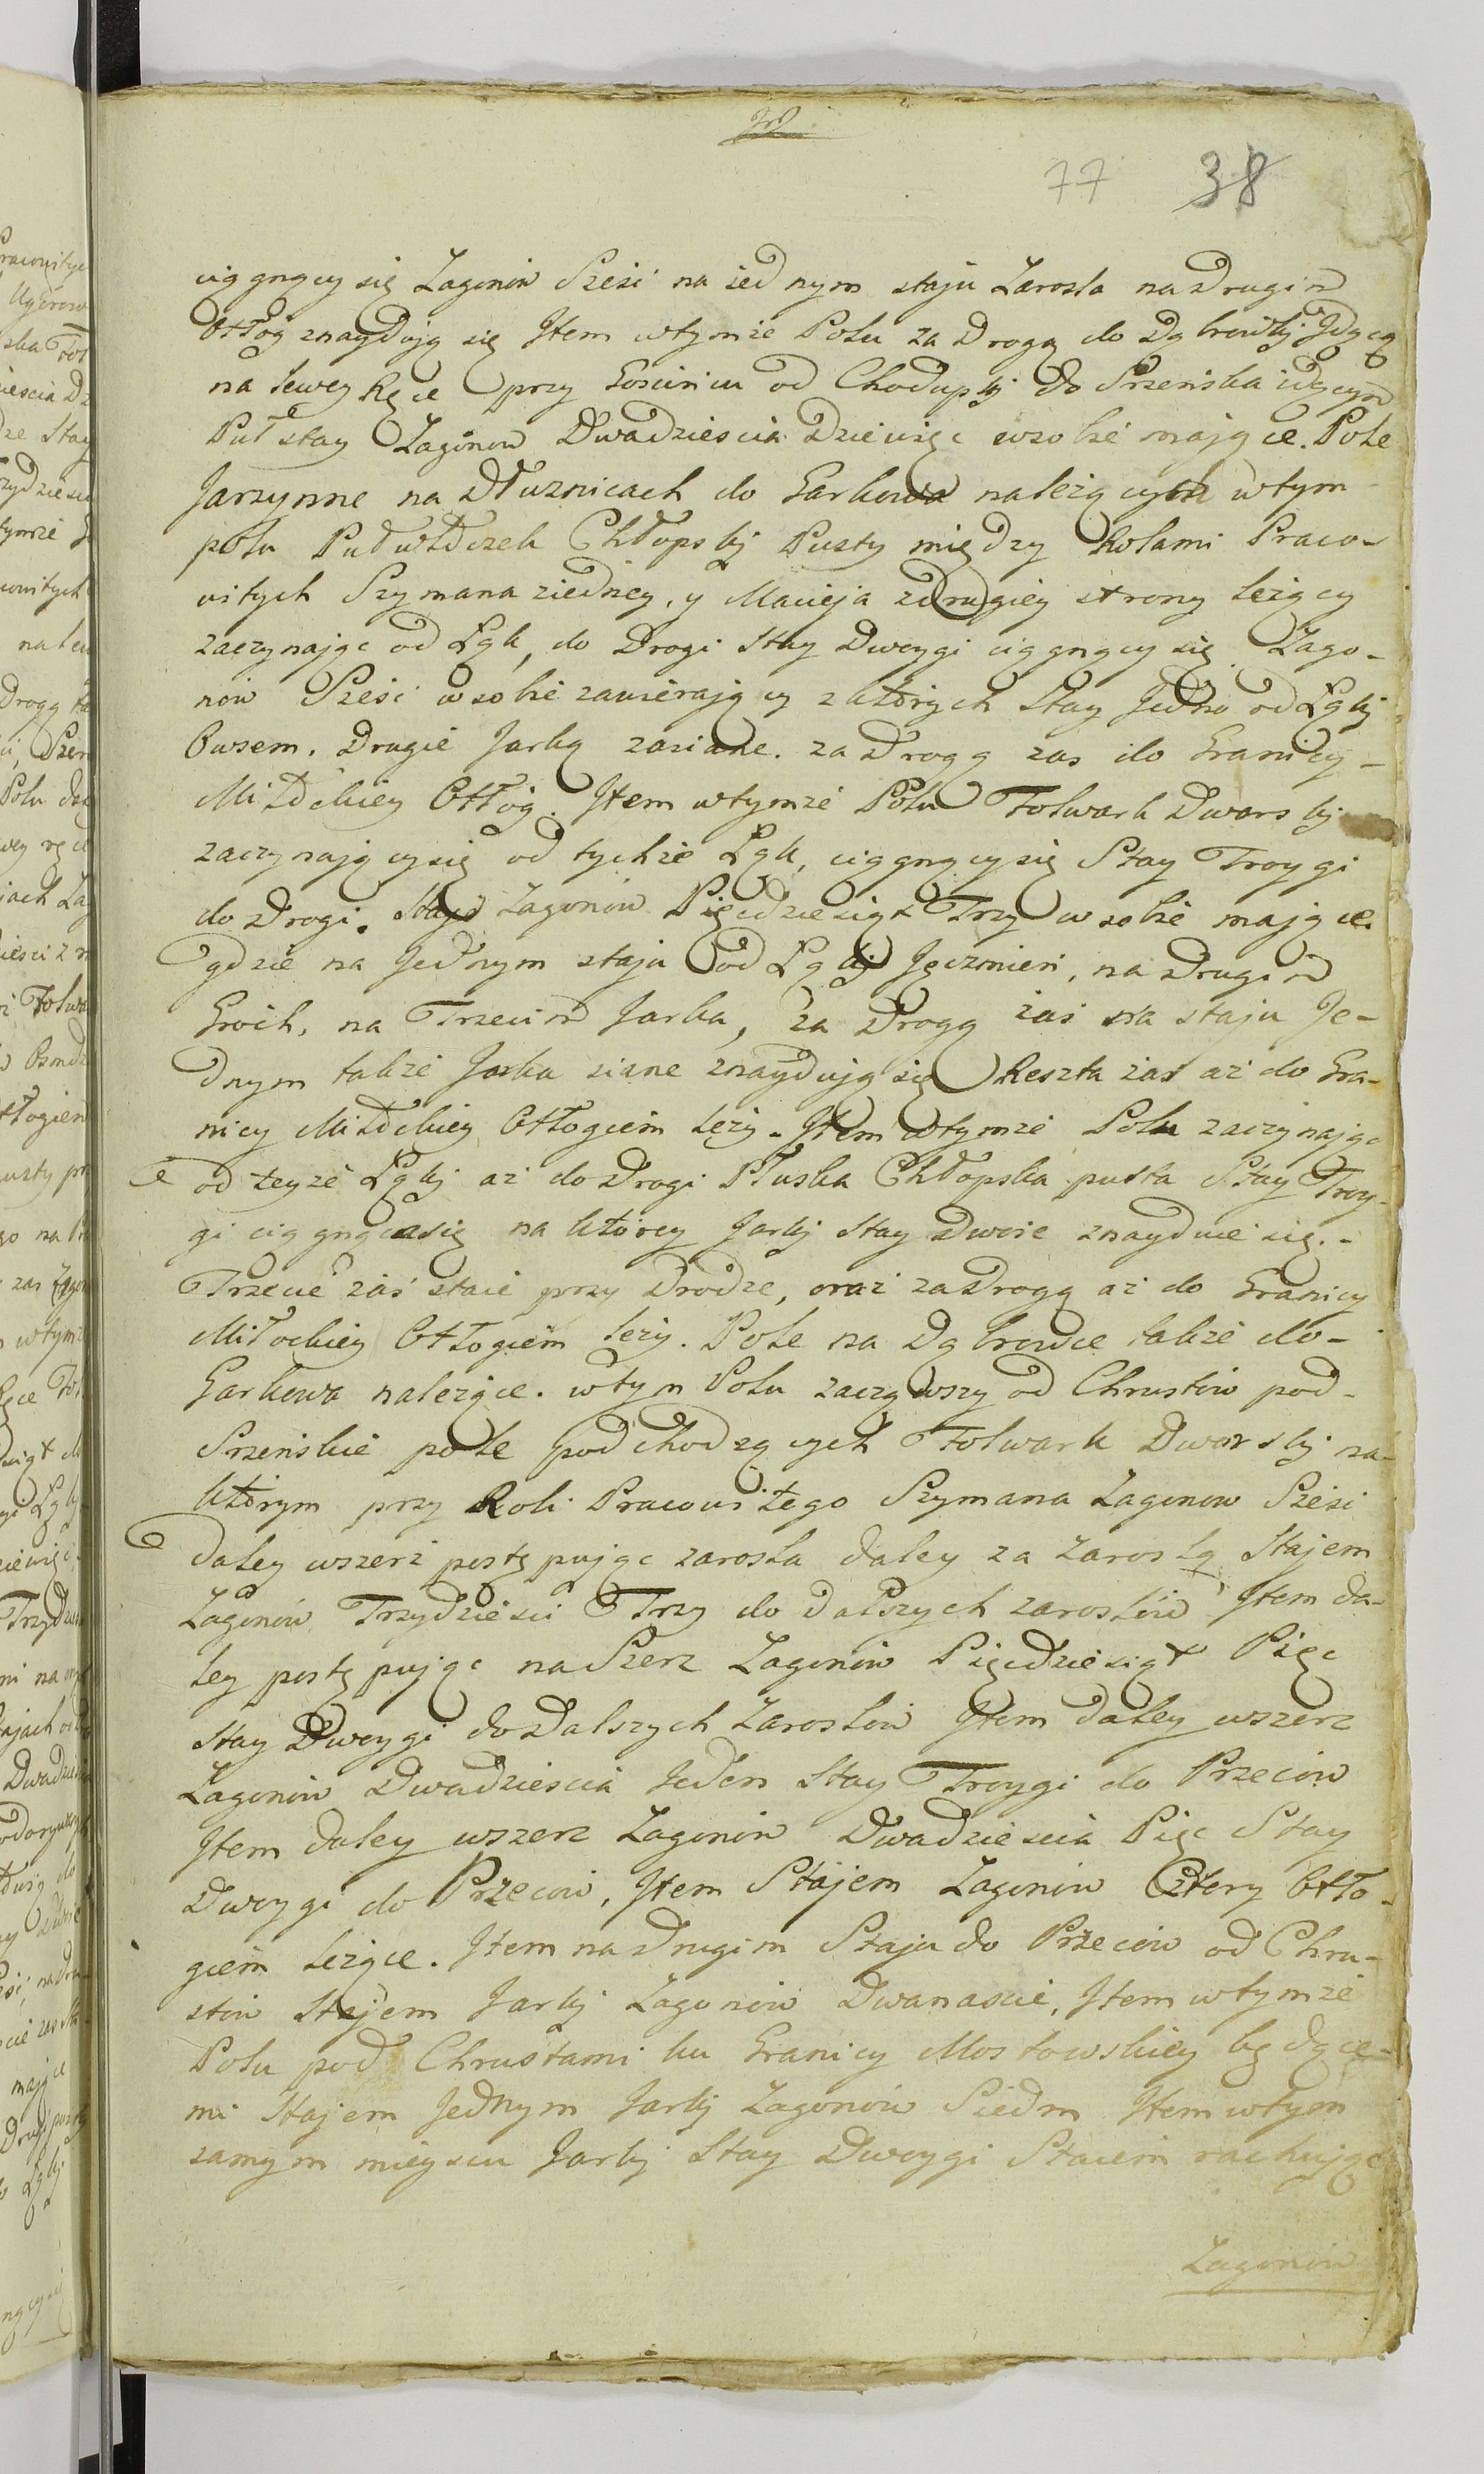 77 38
ciągnący się Zagonów Sześć na jednym staju Zarosła na Drugim
Odłóg znaydują się Jtem wtymże Polu za Drogą do Dąbrowki Jdącą
na lewey Ręce przy Gościńcu od Chodupki do Srzeńska idącym
Puł stay Zagonow Dwadziescia Dziewięc wsobie mające. Pole
Jarzynne na Dłuznicach do Garkowa należących wtym
polu Pułwłoczek Chłopski Pusty między Rolami Praco-
witych Szymana ziedney, y Macieja zdrugiey strony leżący
zaczynając od Łąk, do Drogi Stay Dwoygi ciągnący się Zago-
nów Sześć wsobie zawierający z których Stay Jedno od Łąki
Owsem. Drugie Jarką zasiane. za Drogą zas do Granicy
Miłockiey Odłóg. Jtem wtymże Polu Folwark Dworski
zaczynający się od tychże Łąk, ciągnący się Stay Troygi
do Drogi. Zagonów Pięcdziesiąt Trzy w sobie mające.
gdzie na Jednym staju od Łąki Jęczmień, na Drugim
Groch, na Trzecim Jarka, za Drogą zaś na staju Je-
dnym także Jarka siane znaydują się Reszta zas aż do Gra-
nicy Miłockiey Odłogiem leży. Jtem wtymże Polu zaczynając
od teyże Łąki aż do Drogi Płuska Chłopska pusta Stay Troy-
gi ciągnącasię na którey Jarki Stay Dwoie znayduie się.
Trzecie zaś staie przy Drodze, oraz za Drogą aż do Granicy
Miłockiey Odłogiem leży. Pole na Dąbrowce także do
Garkowa należące. wtym Polu zacząwszy od Chrustów pod
Srzeńskie pole podchodzących Folwark Dworski na
którym przy Roli Pracowitego Szymana Zagonow Sześć
daley wszerż postępując zarosła daley za Zaroslą Stajem
Zagonów Trzydzieści Trzy do dalszych zarosłów Jtem da-
ley postępując na Szerz Zagonów Pięcdziesiąt Pięc
Stay Dwoygi do Dalszych Zarosłów Jtem daley wszerz
Zagonów Dwadziescia Jeden Stay Troygi do Przeciw
Jtem daley wszerz Zagonów Dwadziescia Pięc Stay
Dwoygi do Przeców, Jtem Stajem Zagonów Cztery Odło-
giem leżące. Jtem na Drugim Staju do Przeców od Chru-
stów Stajem Jarki Zagonów Dwanascie, Jtem wtymże
Polu pod Chrustami ku Granicy Mostowskiey będące-
mi Stajem Jednym Jarki Zagonów Siedm Jtem wtym
samym mieyscu Jarki Stay Dwoygi Staiem rachując
Zagonów